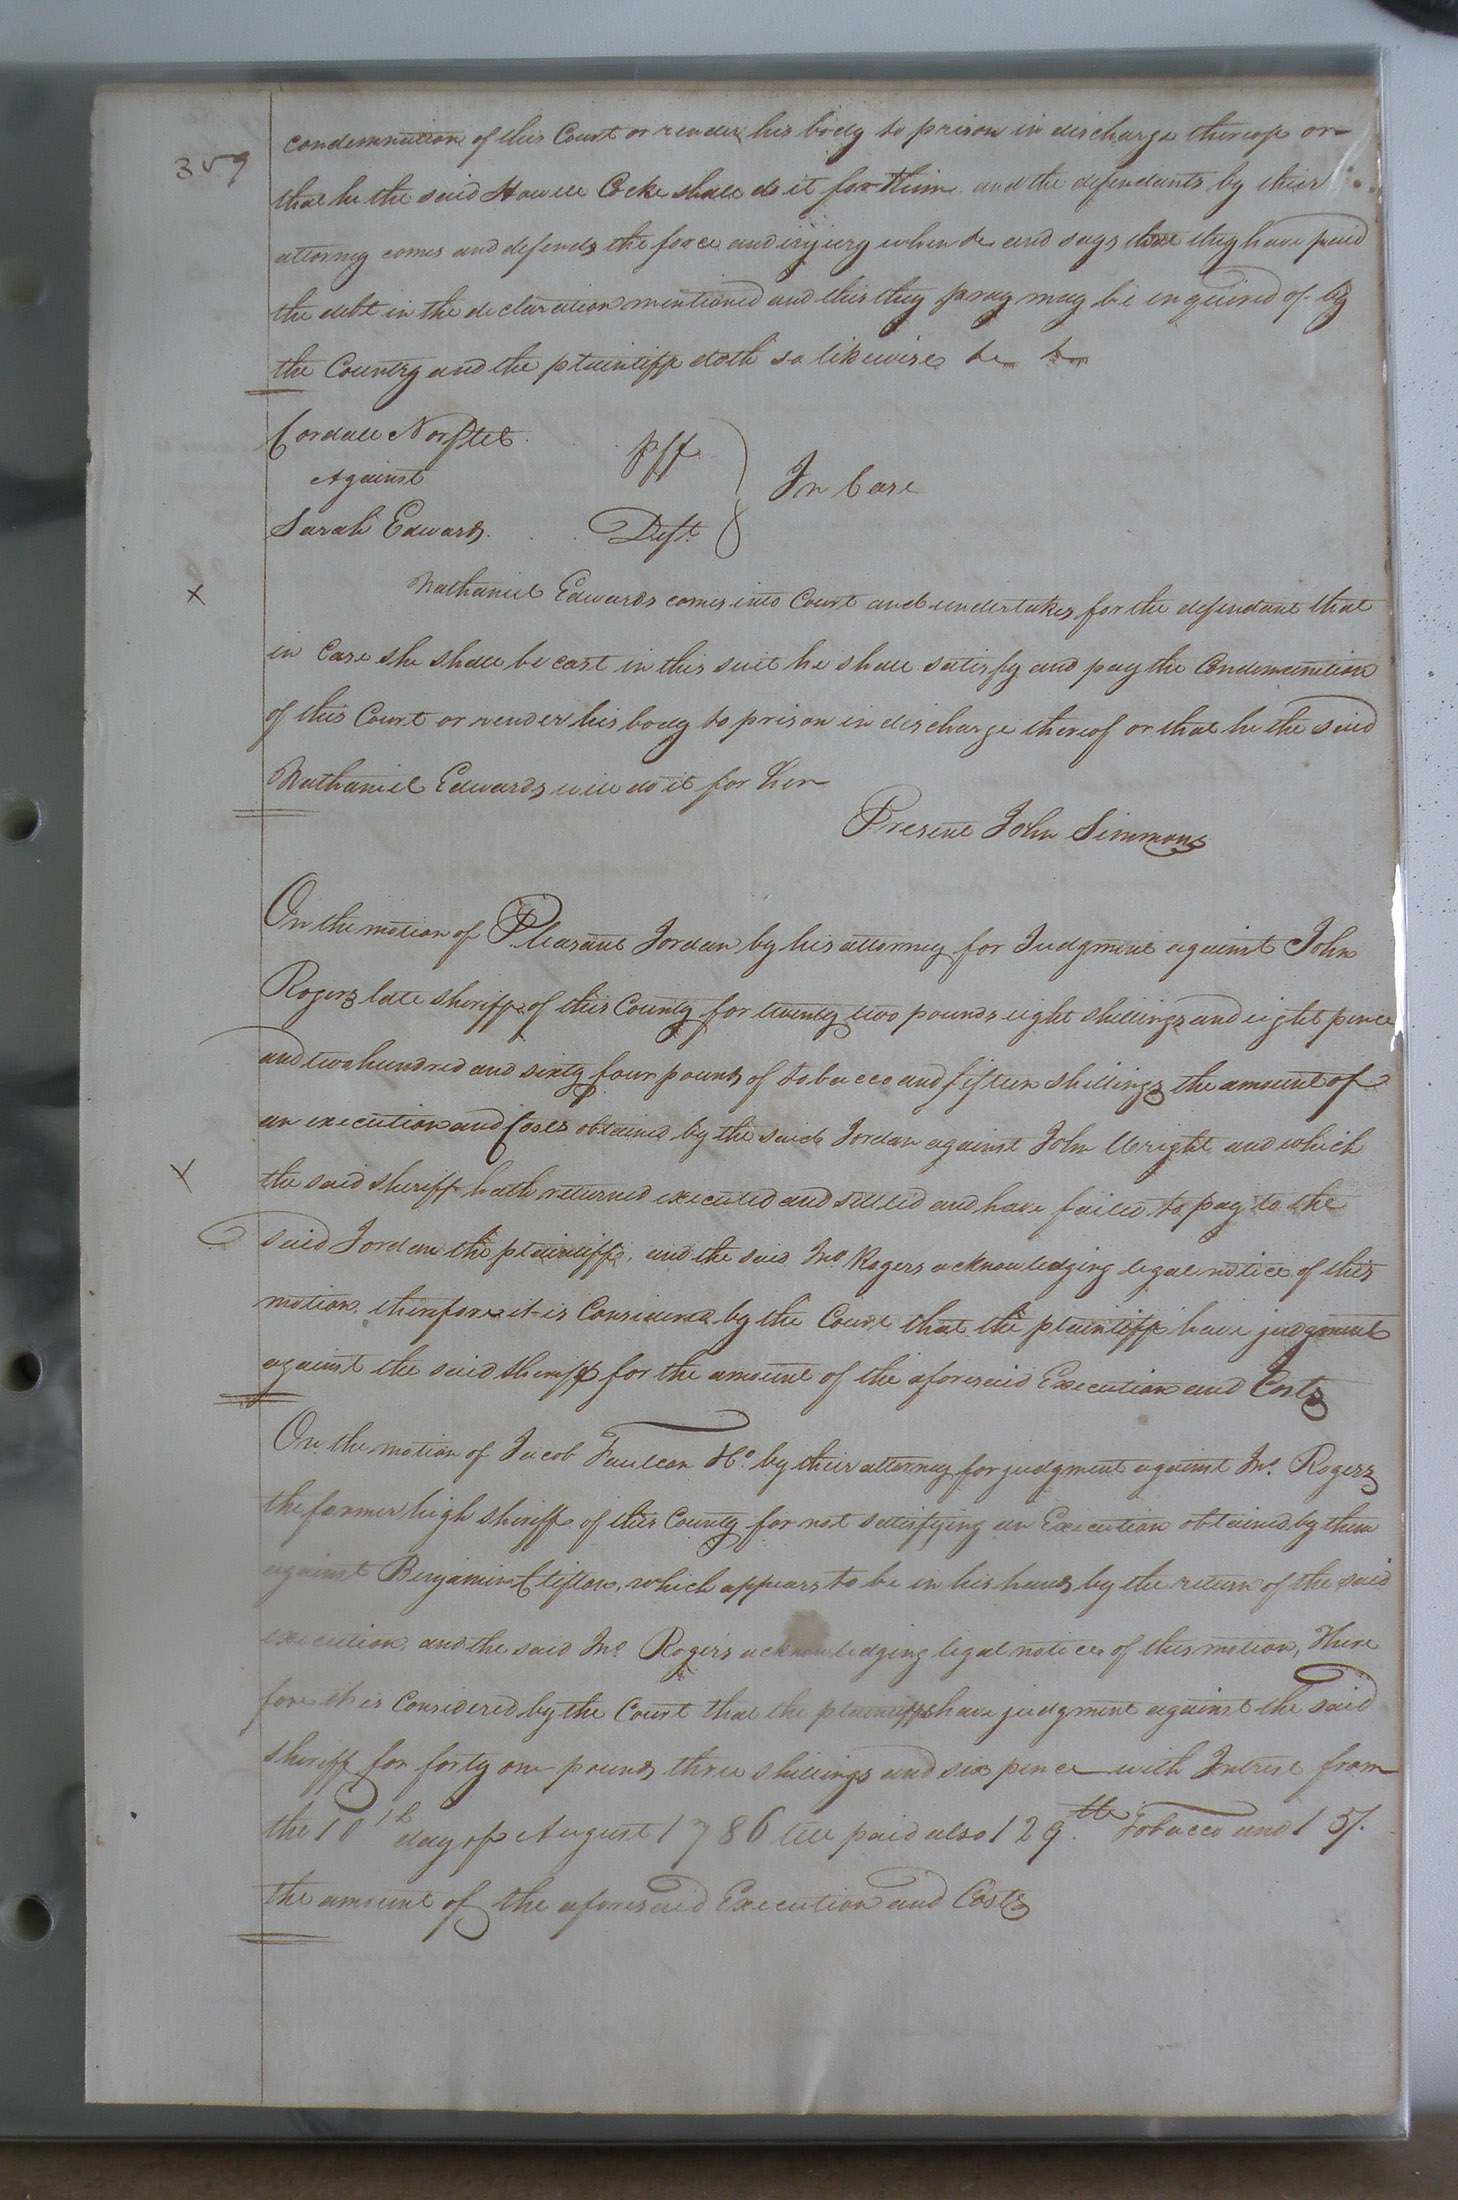 359
condemnation of this Court or render his body to prison in discharge thereof or
that he the said Howell Cocke shall do it for Him and the defendants by their
attorney comes and defends the force and injury when &c and says that they have paid
the debt in the declaration mentioned and this they pray may be inquired of by
the Country and the plaintiff doth so likewise &c &c
Cordall Norfleet Plff
Against
In Case
Sarah Edwards Deft.
x
Nathaniel Edwards comes into Court and undertakes for the defendant that
in Case she shall be cast in this suit he shall satisfy and pay the Condemnation
of this Court or render his body to prison in discharge thereof or that he the said
Nathaniel Edwards will do it for her
Present John Simmons
On the motion of Pleasant Jordan by his attorney for Judgment against John
Rogers late sheriff of this County for twenty two pounds eight shillings and eight pence
and two hundred and sixty four pounds of tobacco and fifteen shillings the amount of
an execution and Costs obtained by the said Jordan against John Wright and which
x
the said sheriff hath returned executed and settled and have failed to pay to the
said Jordan the plaintiff, and the said Jno Rogers acknowledging legal notice of this
motion therefore it is Considered by the Court that the plaintiff have judgment
against the said sheriff for the amount of the aforesaid Execution and Costs
On the motion of Jacob Faulcon &Co. by their attorney for judgment against Jno. Rogers
the former high sheriff of this County for not satisfying an Execution obtained by them
against Benjamin Clifton, which appears to be in his hands by the return of the said
execution, and the said Jno Rogers acknowledging legal notice of this motion, There
fore it is Considered by the Court that the plaintiffs have judgment against the said
sheriff for forty one pounds three shillings and six pence with Intrest from
the 10th day of August 1786 till paid also 129.lb Tobacco and 15/.
the amount of the aforesaid Execution and Costs